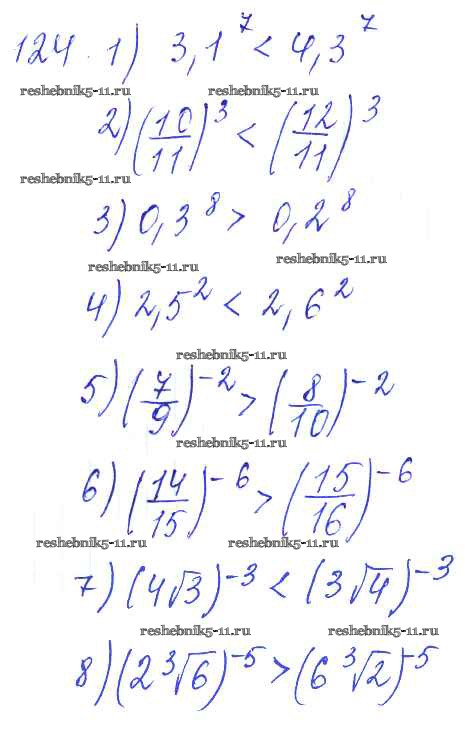 124. 1) 3,1^7 < 4,3^7
reshebnik5-11.ru reshebnik5-11.ru
2) (10/11)^3 < (12/11)^3
reshebnik5-11.ru
3) 0,3^8 > 0,2^8
reshebnik5-11.ru reshebnik5-11.ru
4) 2,5^2 < 2,6^2
reshebnik5-11.ru
5) (7/9)^-2 > (8/10)^-2
reshebnik5-11.ru
6) (14/15)^-6 > (15/16)^-6
reshebnik5-11.ru reshebnik5-11.ru
7) (4√3)^-3 < (3√4)^-3
reshebnik5-11.ru reshebnik5-11.ru
8) (2∛6)^-5 > (6∛2)^-5